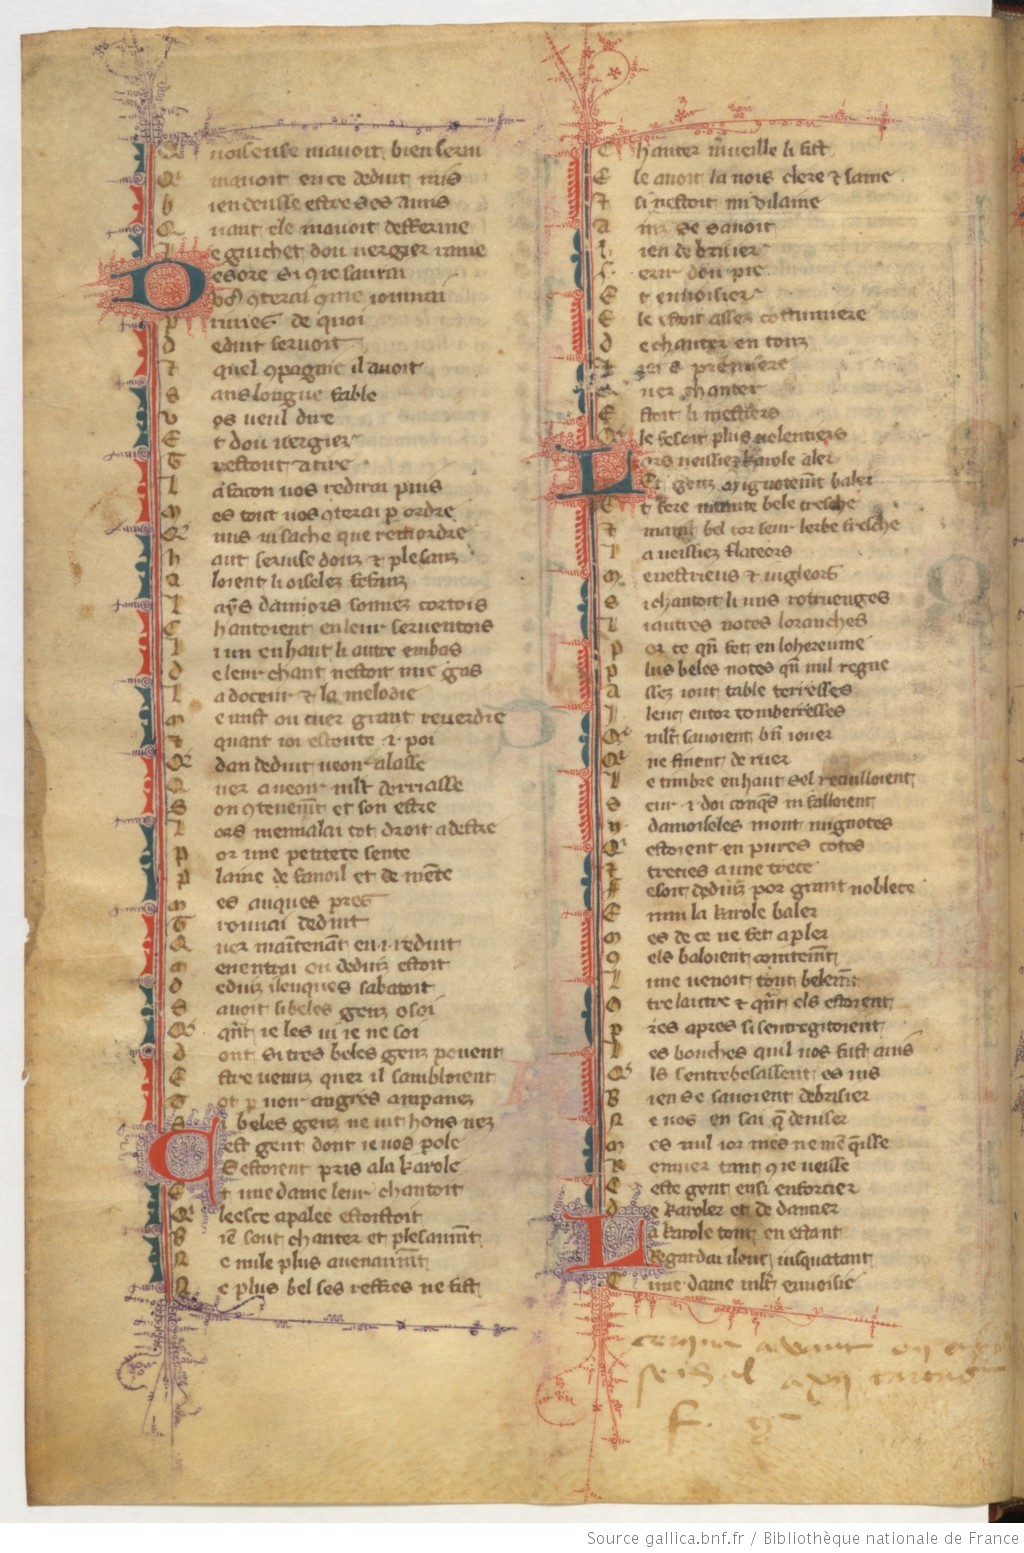 Qu uoiseuse mauoit bien serui
Qui mauoit en ce deduit mis
b ien deusse estre ses amis
Q uant ele mauoit defferme
L e guichet dou uergier rame
D esore si 9 ie saurai
vos 9terai 9ment iouurai
p rimes de quoi
d eduit seruoit
t quel 9paignie il auoit
s ans longue fable
v os ueul dire
E t dou uergier
T restout a tire
L a facon uos redirai puis
m es tout uos 9terai p ordre
Q nuis ni sache que remordre
h aut seruise douz et plesanz
a loient li oiselez fesanz
L ays damors sonnez cortois
C hantoient en leur seruentois
L i un en haut li autre en bas
d e leur chant nestoit mie gas
L a doceur et la melodie
m e mist ou cuer grant reuerdie
quant ioi escoute .i. poi
dan deduit ueoir alaisse
Q uer a ueoir mlt derriasse
S on 9tenemt et son estre
L ors men alai tot droit a destre
p or une petitete sente
p laine de fanoil et de mete
m es auques pres
T rouuai deduit
Q uer maitenant en .i. reduit
men entrai ou deduiz estoit
d eduiz ileuques sabatoit
S auoit si beles genz o soi
Q qnt ie les ui ie ne soi
d ont si tres beles genz peuent
E stre uenuz quer il sambloient
T ot p uoir angres ampanez
si beles genz ne uit hons nez
C est gent dont ie uos pole
S estoient pris a la karole
E t une dame leur chantoit
Q leesce apalee estoit
B ie sout chanter et plesaumt
N e nule plus auenaumt
N e plus bel ses refres ne fist
C hanter mueille li sist
E le auoit la uois clere et saine
si nestoit mi vilaine
a inz se sauoit
b ien debrisier
f erir dou pie
E t enuoisier
E le estoit assez costumiere
d e chanter en touz
premiere
quer chanter
E stoit li mestiers
Q le fesoit plus uolentiers
L ors ueissiez karole aler
Et genz mignotemt baler
E t fere mainte bele tresche
t maint bel tor seur lerbe fresche
L a ueissiez flateors
m enestrieus et iugleors
s i chantoit li uns rotruenges
L i autres notes loranches
p or ce qn fet en lohereinne
p lus beles notes qn nul regne
A ssez iout table terresses
i leuc entor tomberresses
Q mlt sauoient bn iouer
Q ne finent de ruer
L e timbre en haut sel recuilloient
s eur .i. doi conqs ni failloient
damoiseles mont mignotes
Q estoient en pures cotes
t treciees a une trece
F esoit deduiz por grant noblece
E nmi la karole baler
m es de ce ne fet a pler
9 els baloient contemt
L une uenoit tout belemt
9 tre lautre et qnt els estoient
p res apres si sentregitoient
l es bouches quil uos fust auis
Q ls sentrebesassent es uis
B ien se sauoient debrisier
N e uos en sai q deuiser
m es nul ior mes ne me qisse
R emuer tant 9 ie ueisse
E ceste gent ensi enforcier
d e karoler et de dancier
L a karole tout en estant
Regardai ileuc iusqua tant
C une dame mlt enuoisie
Source gallica.bnf.fr / Bibliothèque nationale de France